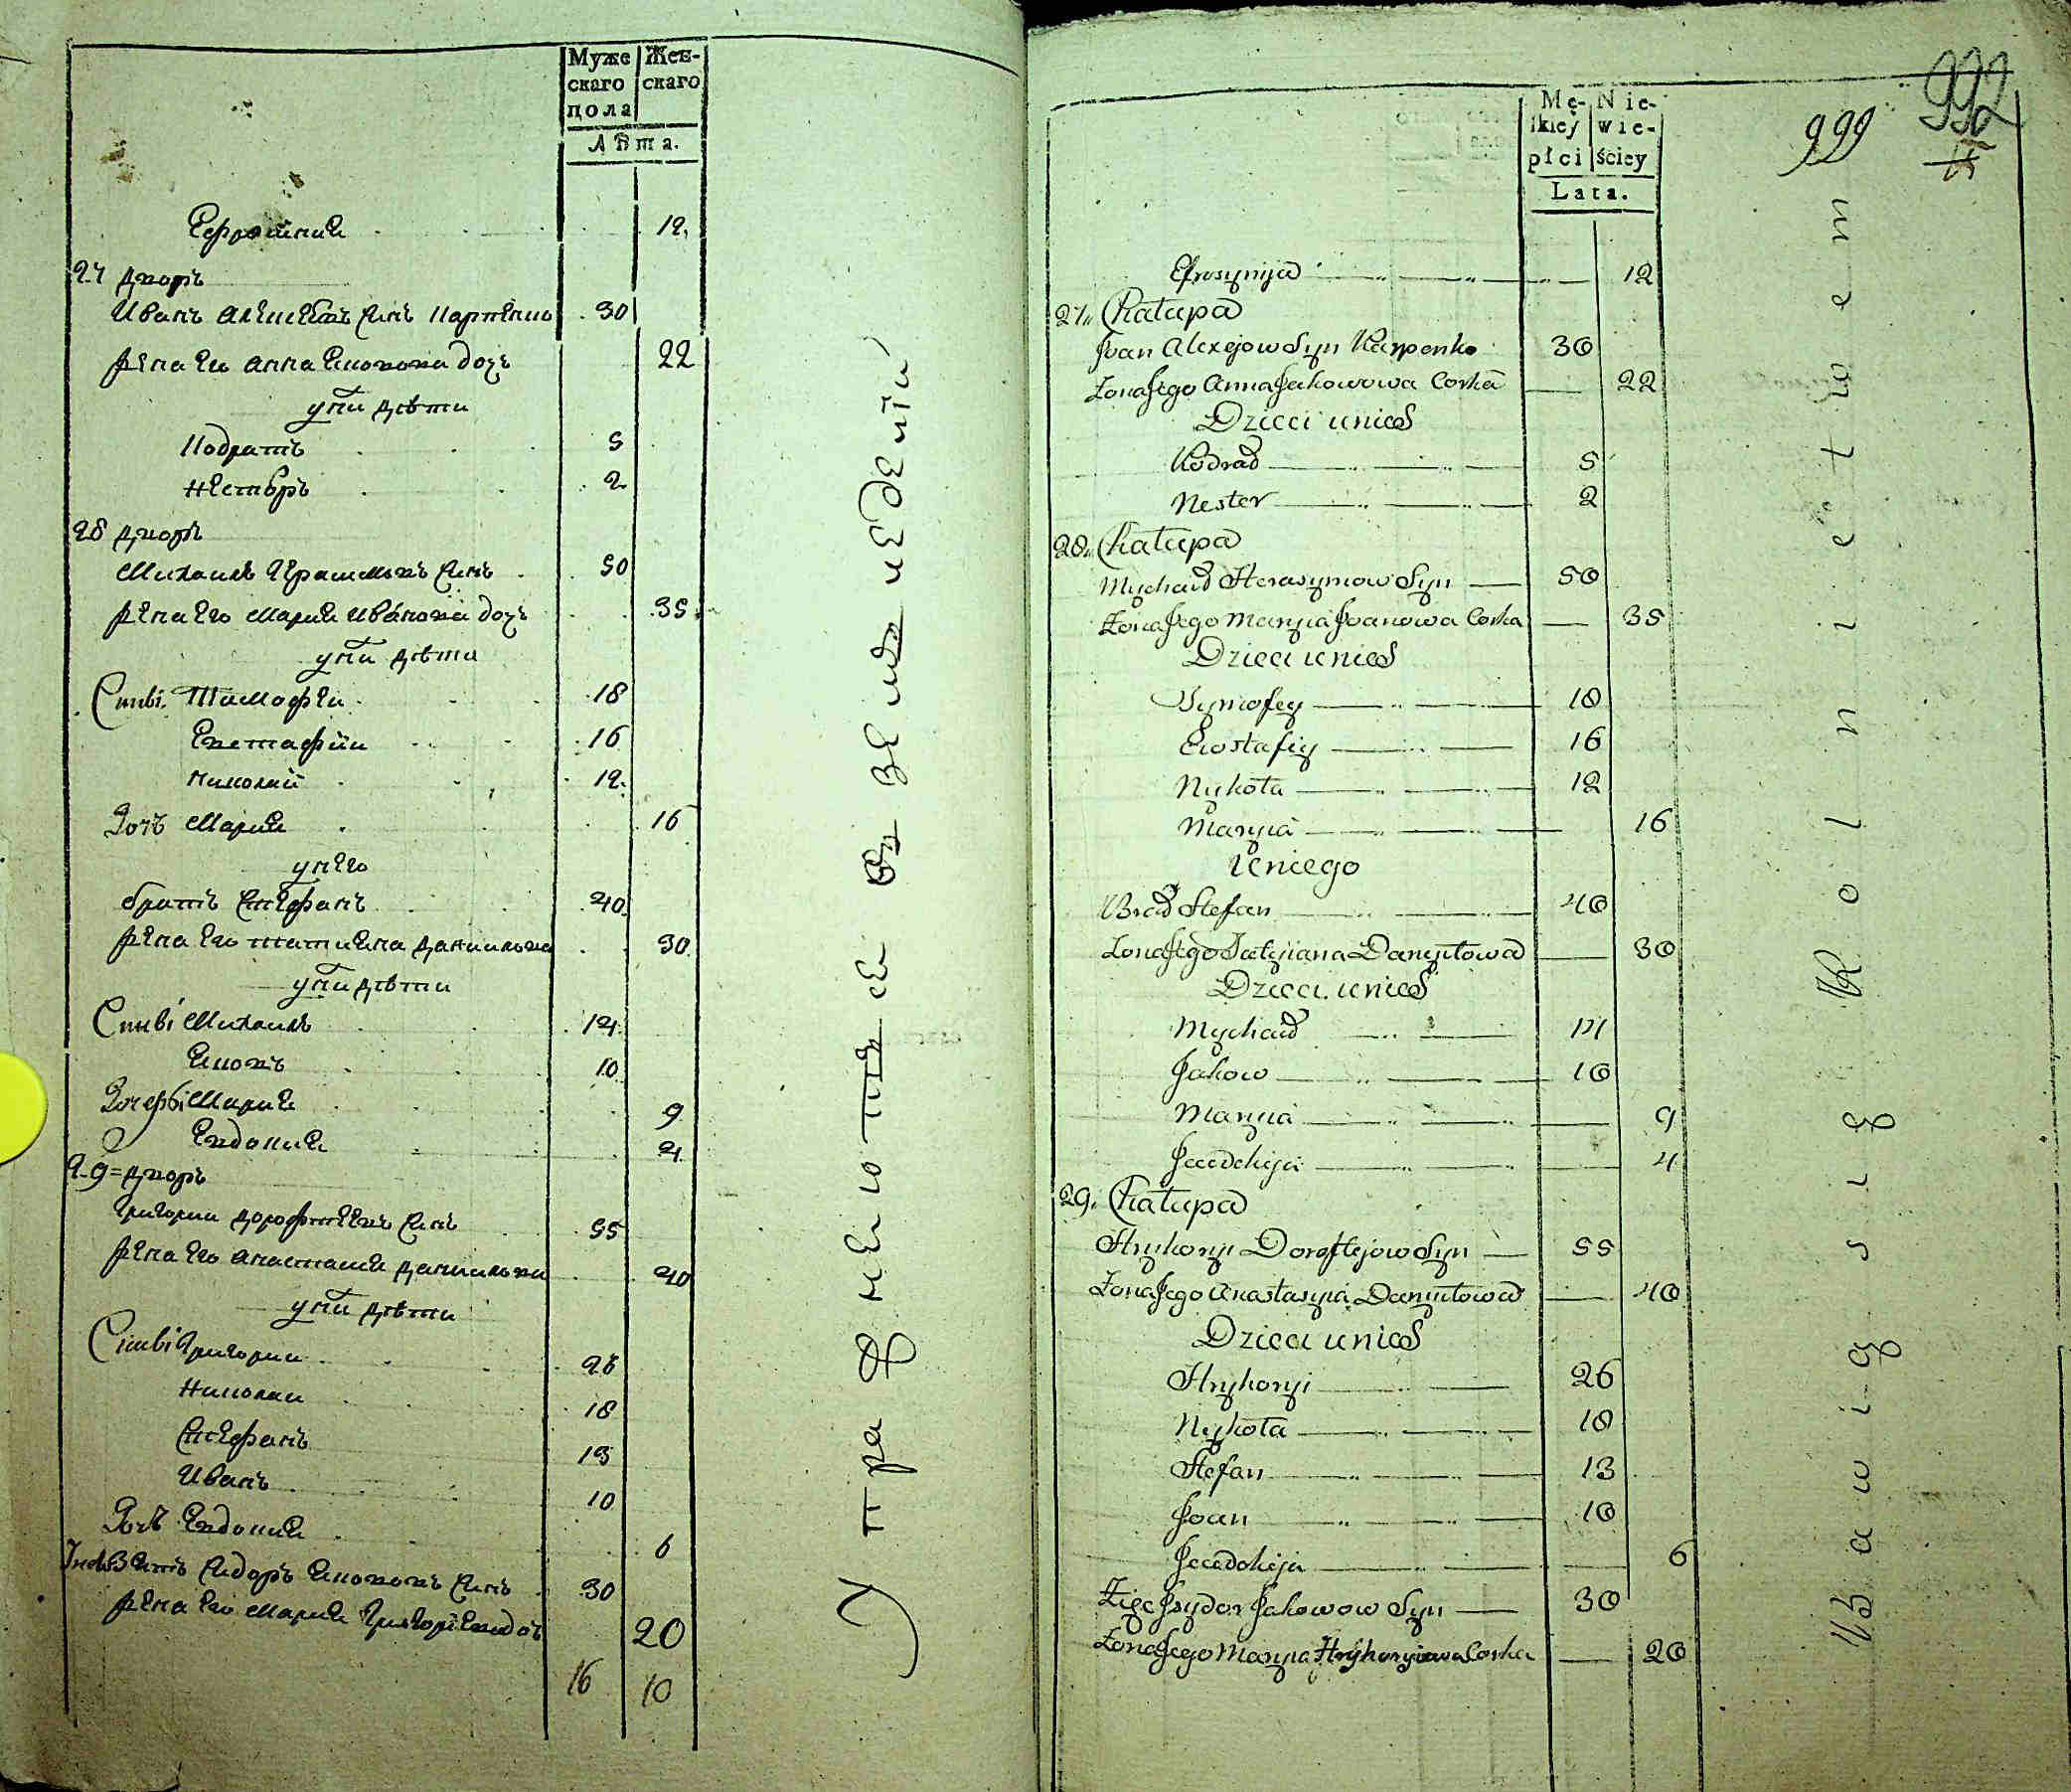 Муже
скаго
пола
Жен-
скаго
Лѣта.
Ефросиния 12
27 Дворъ
Иванъ Алексѣевъ сынъ Карпенко 30
Жена его Анна Яковова дочь 22
у них дѣти
Кодратъ 5
Нестѣръ 2
28 Дворъ
Михаилъ Герасимовъ сынъ 50
Жена его Мария Иванова дочь 35
у них дѣти
Сынві Тимофей 18
Евстафии 16
Николай 12
Дочь Мария 16
у него
братъ Стефанъ 40
Жена его Татияна Даниилова 30
у них дѣти
Сынві Михаилъ 14
Яковъ 10
Дочери Мария 9
Евдокия 4
29 = Дворъ
Григории Дорофтеевъ сынъ 55
Жена его Анастасия Даниилова 40
у них дѣти
Сынві Григории 26
Николаи 18
Стефанъ 13
Иванъ 10
Дочь Евдокия 6
Зять Сидоръ Якововъ сынъ 30
Жена его Мария Григориева доч 20
16 10
Упражнеютсе въ землеѣделіи
Mę-
ſkiey
płci
Nie-
wie-
ściey
Lata.
999
992
Efrosynija 12
27. Chałupa
Joan Alexejow Syn Karpenko 30
Żona Jego Anna Jakowowa Corka 22
Dzieci u nich
Kodrad 5
Nester 2
28. Chałupa
Mychaił Herasymow Syn 50
Żona Jego Maryia Joanowa Corka 35
Dzieci u nich
Tymofey 18
Ewstafiy 16
Nykoła 12
Maryia 16
U niego
Brad Stefan 40
Żona Jego Tatyiana Danyłowa 30
Dzieci u nich
Mychaił 14
Jakow 10
Maryia 9
Jewdokija 4
29. Chałupa
Hryhoryi Doroftejow Syn 55
Żona Jego Anastasyia Danyłowa 40
Dzieci u nich
Hryhoryi 26
Nykoła 18
Stefan 13
Joan 10
Jewdokija 6
Zięć Jsydor Jakowow Syn 30
Żona Jego Maryia Hryhoryiowa Corka 20
Bawią się Rolnictwem